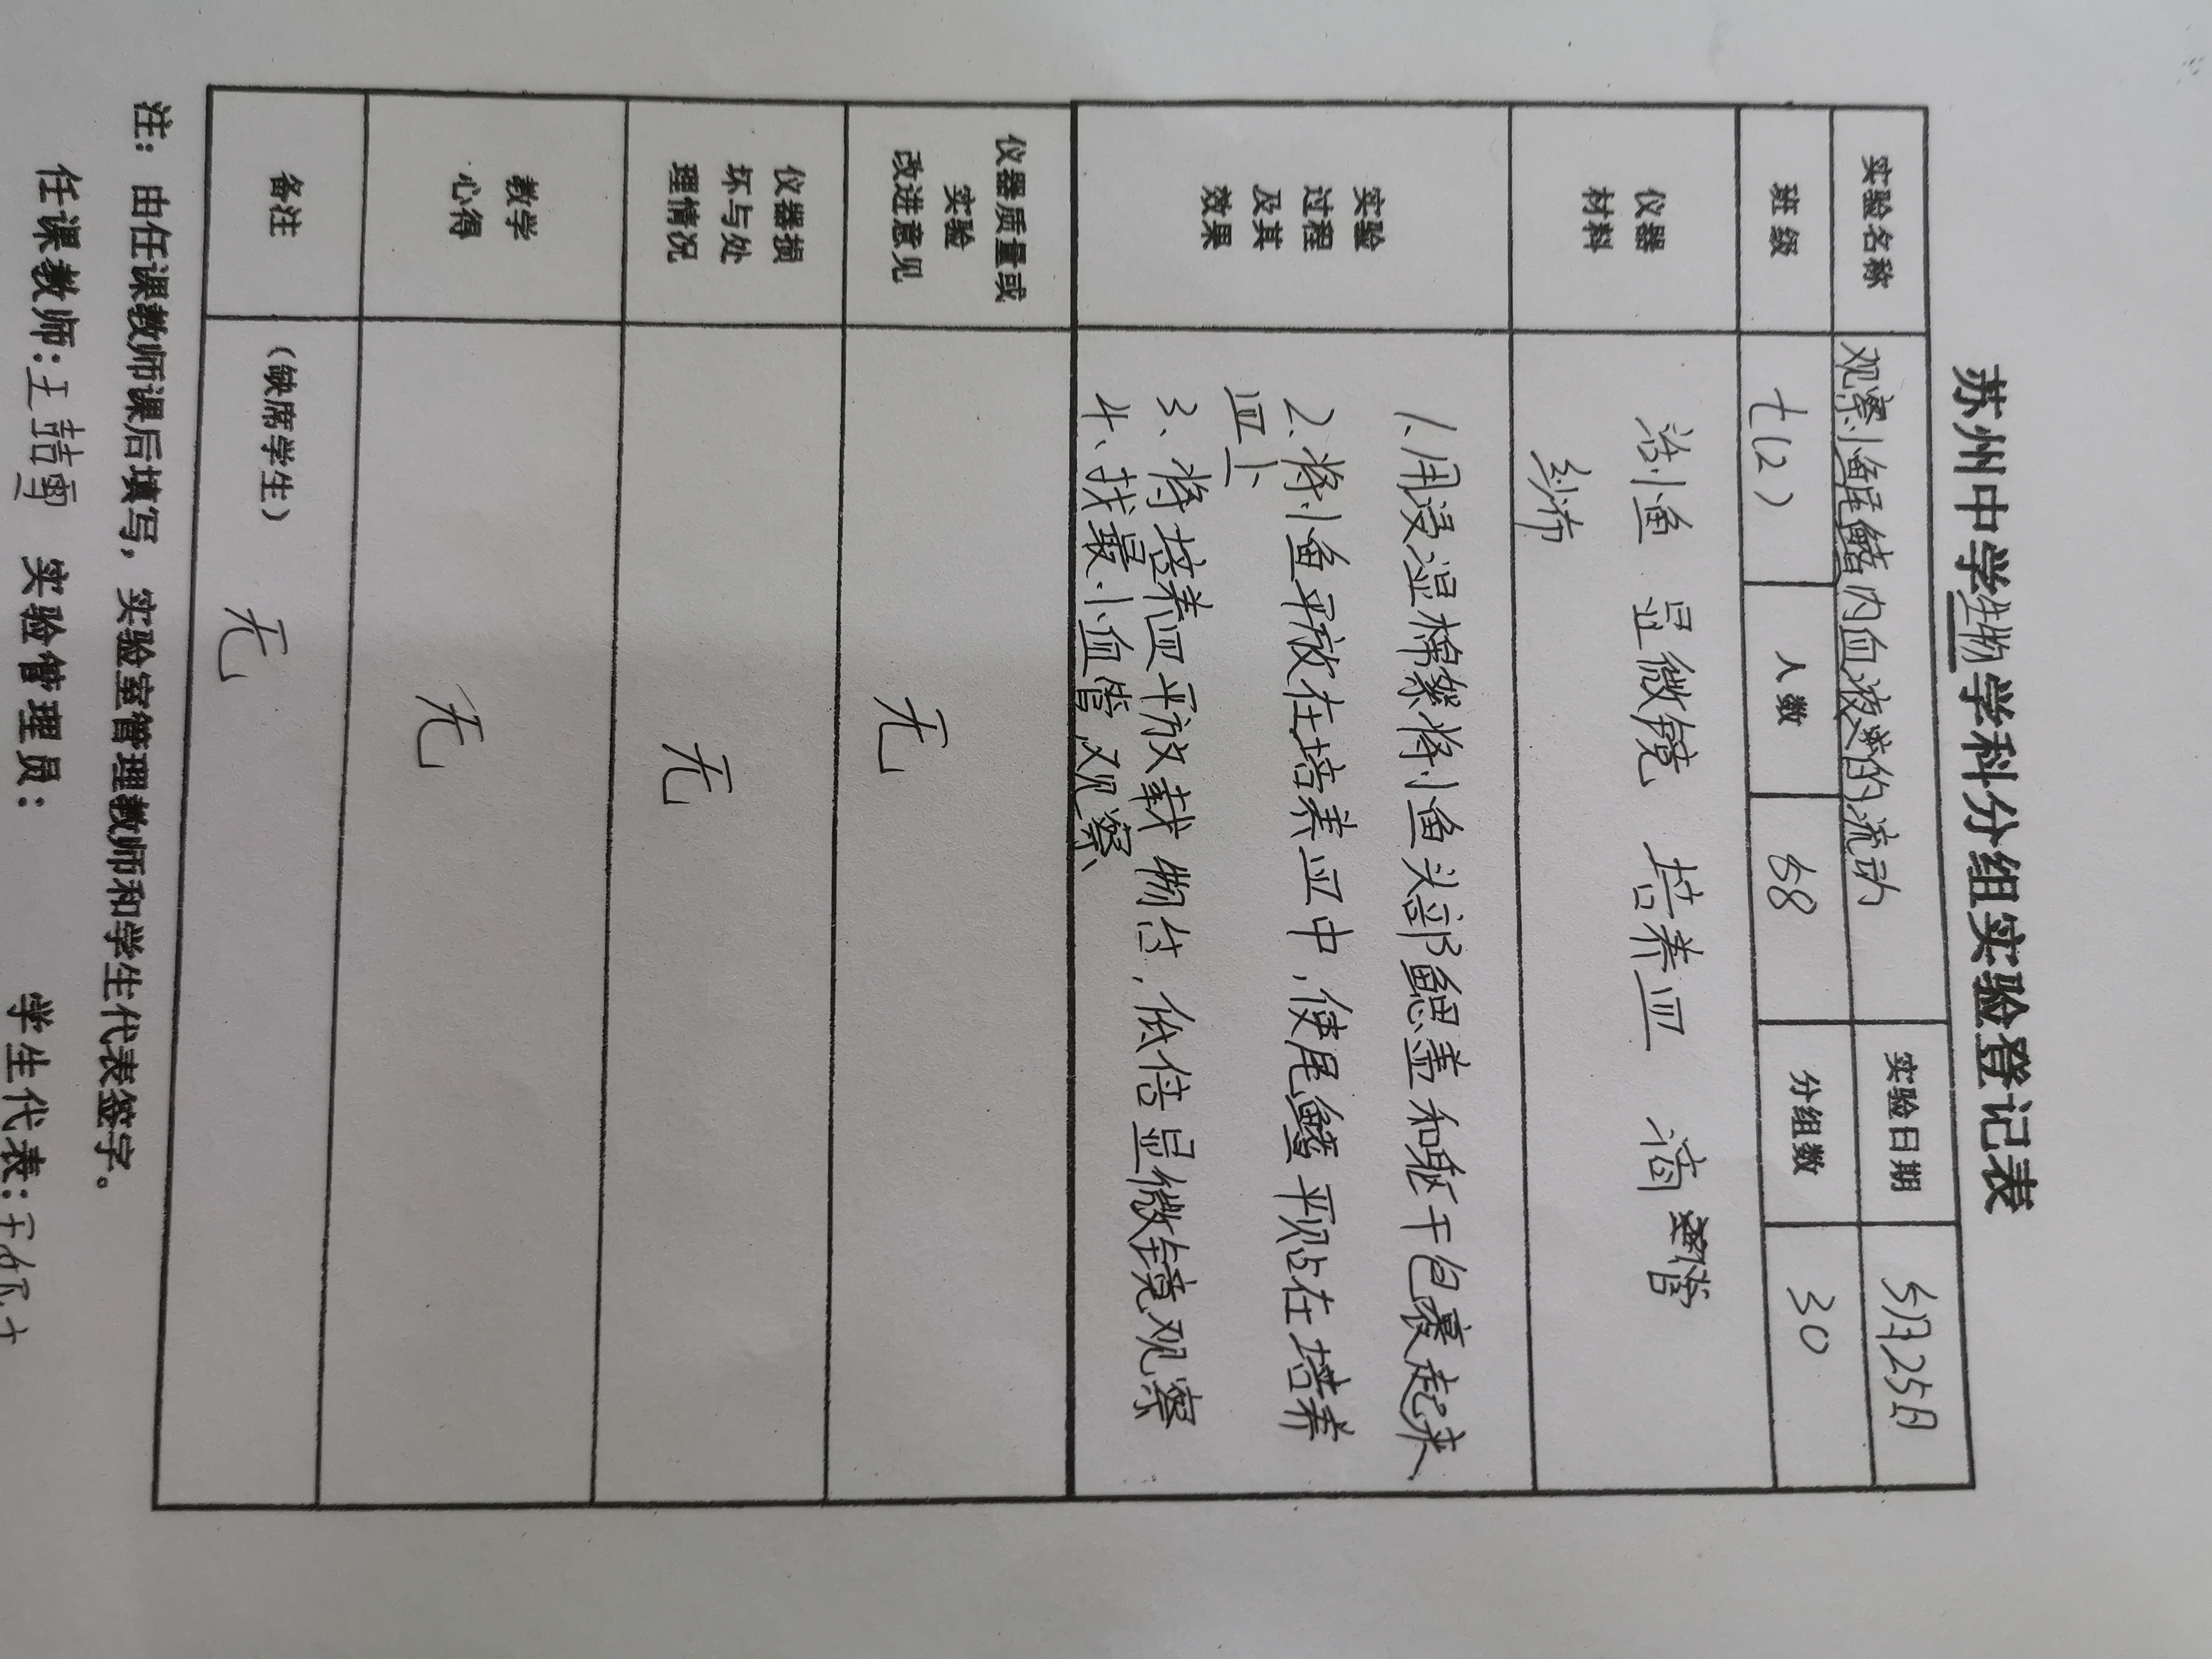 苏州中学生物学科分组实验登记表
实验名称 观察小鱼尾鳍内血液的流动 实验日期 5月25日
班级 七(2) 人数 68 分组数 30
仪器 活小鱼 显微镜 培养皿 滴管
材料 纱布
实验
过程
及其
效果
1.用浸湿棉絮将小鱼头部鳃盖和躯干包裹起来
2.将小鱼平放在培养皿中,使尾鳍平贴在培养
皿上
3、将培养皿平放载物台,低倍显微镜观察
4、找最小血管观察
仪器质量或
实验
改进意见
无
仪器损
坏与处
理情况
无
教学
心得
无
备注 (缺席学生) 无
注: 由任课教师课后填写, 实验室管理教师和学生代表签字。
任课教师: 王喆雪 实验管理员: 学生代表: